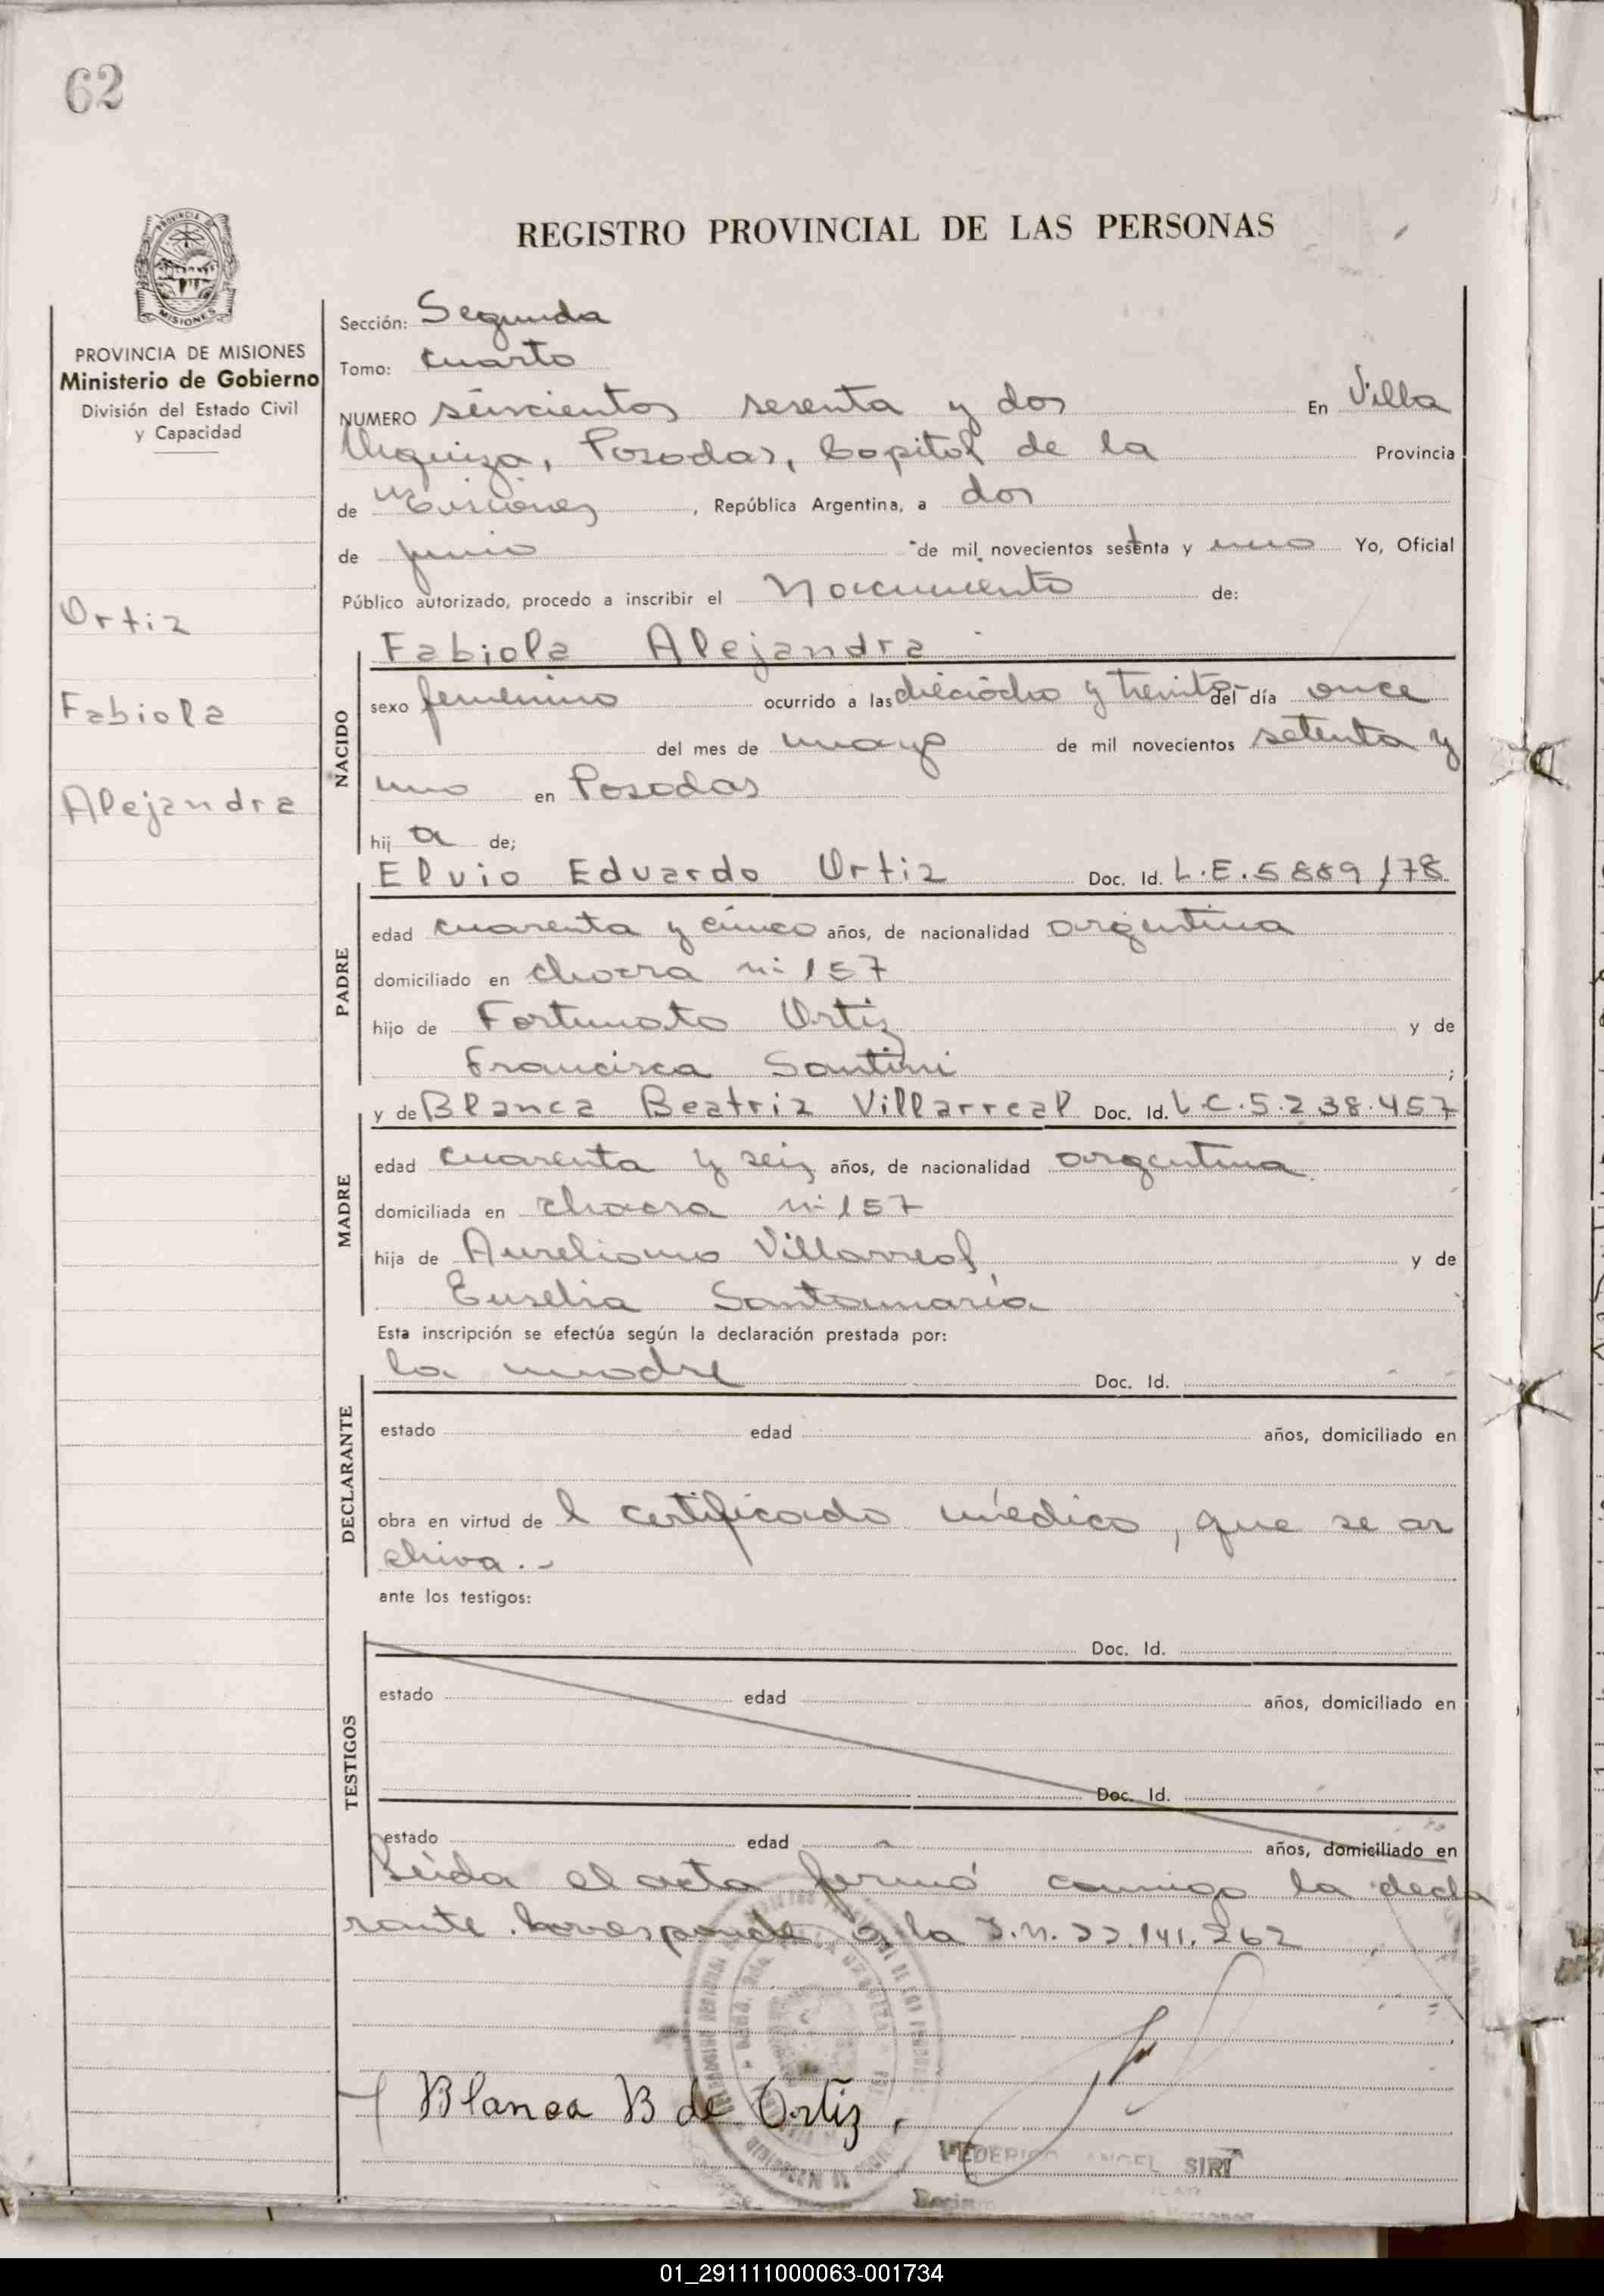 62
REGISTRO PROVINCIAL DE LAS PERSONAS
PROVINCIA DE MISIONES
Ministerio de Gobierno
División del Estado Civil
y Capacidad
Ortiz
Fabiola
Alejandra
Sección: Segunda
Tomo: cuarto
NUMERO seiscientos sesenta y dos En Villa
Urquiza, Posadas, Capital de la Provincia
de Misiones, República Argentina, a dos
de junio de mil novecientos setenta y uno Yo, Oficial
Público autorizado, procedo a inscribir el Nacimiento de:
NACIDO
Fabiola Alejandra
sexo femenino ocurrido a las dieciocho y treinta del día once
del mes de mayo de mil novecientos setenta y
uno en Posadas
hija de;
PADRE
Elvio Eduardo Ortiz Doc. Id. L.E. 5889178
edad cuarenta y cinco años, de nacionalidad argentina
domiciliado en chacra nº 157
hijo de Fortunato Ortiz y de
Francisca Santini;
MADRE
y de Blanca Beatriz Villarreal Doc. Id. L.C. 5.238.457
edad cuarenta y seis años, de nacionalidad argentina
domiciliada en chacra nº 157
hija de Aureliano Villarreal y de
Eusebia Santamaría
Esta inscripción se efectúa según la declaración prestada por:
DECLARANTE
la madre Doc. Id.
estado edad años, domiciliado en
obra en virtud del certificado médico, que se ar
chiva.-
ante los testigos:
TESTIGOS
Doc. Id.
estado edad años, domiciliado en
Doc. Id.
estado edad años, domiciliado en
Leida el acta firmó conmigo la decla
rante. Corresponde a la 22.141.262
Blanca B de Ortiz
FEDERICO ANGEL SIRI
01_291111000063-001734